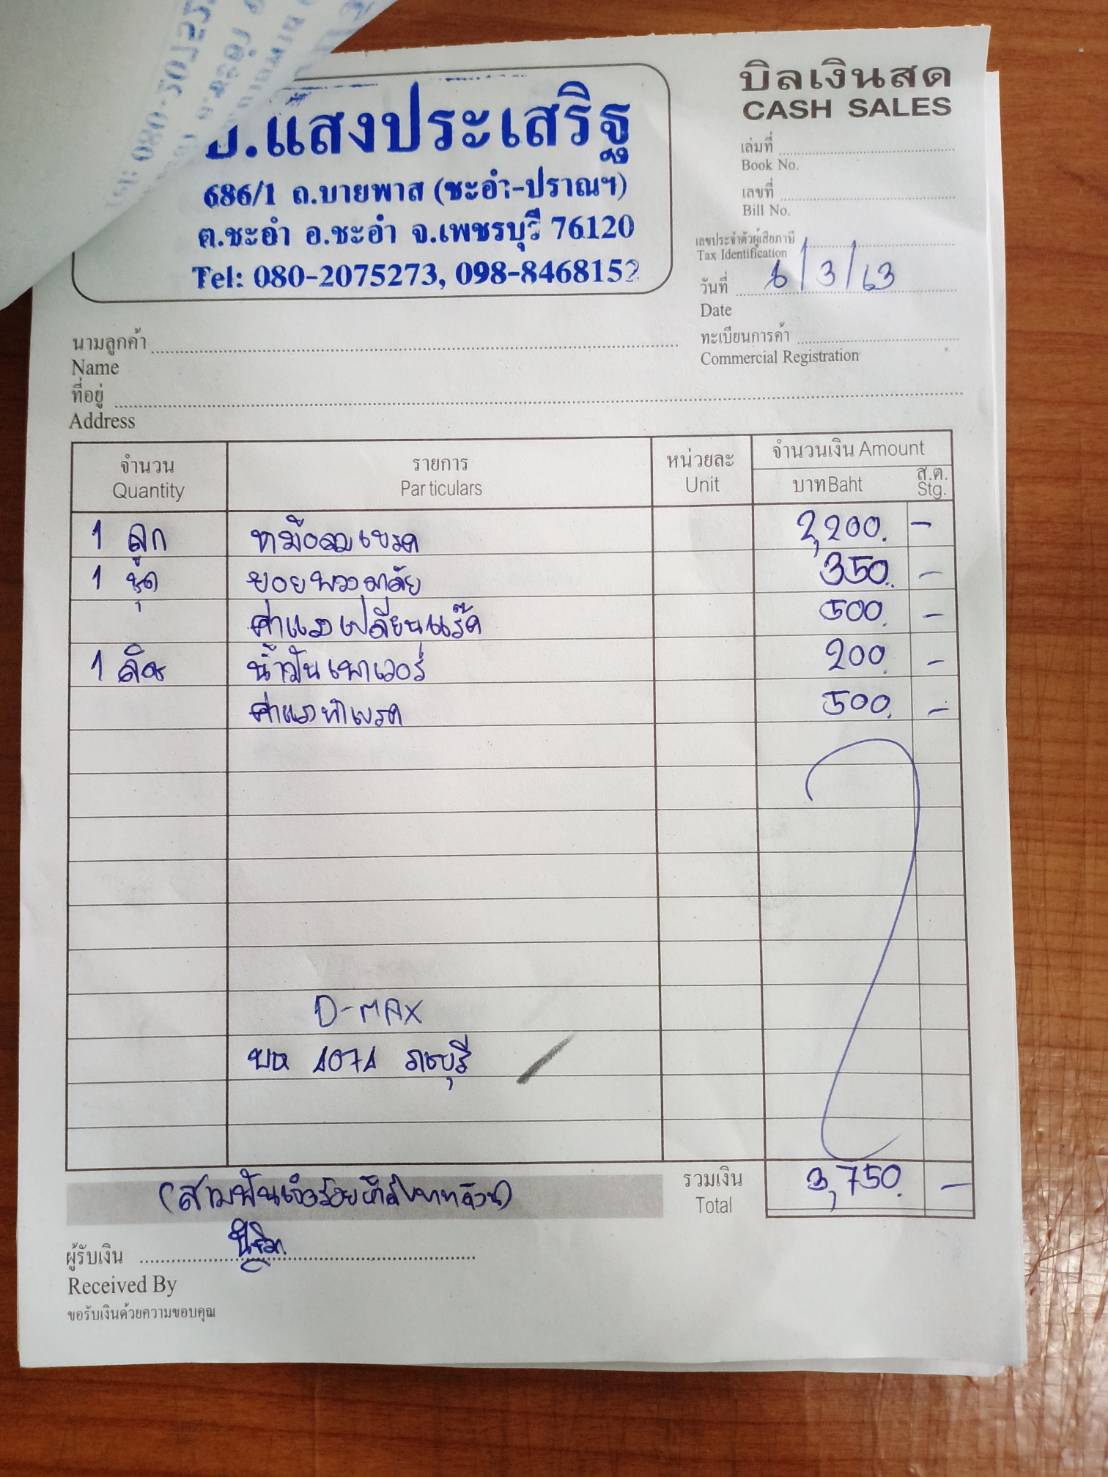 บิลเงินสด
CASH SALES
.แสงประเสริฐ
686/1 ถ.บายพาส (ชะอำ-ปราณฯ)
ต.ชะอำ อ.ชะอำ จ.เพชรบุรี 76120
Tel: 080-2075273, 098-8468152
เล่มที่
Book No.
เลขที่
Bill No.
เลขประจำตัวผู้เสียภาษี
Tax Identification
วันที่ 6/3/63
Date
ทะเบียนการค้า
Commercial Registration
นามลูกค้า
Name
ที่อยู่
Address
จำนวน รายการ หน่วยละ จำนวนเงิน Amount
Quantity Particulars Unit บาท Baht ส.ต. Stg.
1 ลูก หม้อลมเบรค 2,200. -
1 ชุด ยอยพวงมาลัย 350. -
ค่าแรงเปลี่ยนแร็ค 500. -
1 ลิตร น้ำมันเพาเวอร์ 200 -
ค่าแรงทำเบรค 500. -
D-MAX
บห 4074 ราชบุรี
(สามพันเจ็ดร้อยห้าสิบบาทถ้วน) รวมเงิน 3,750. -
Total
ผู้รับเงิน
Received By
ขอรับเงินด้วยความขอบคุณ